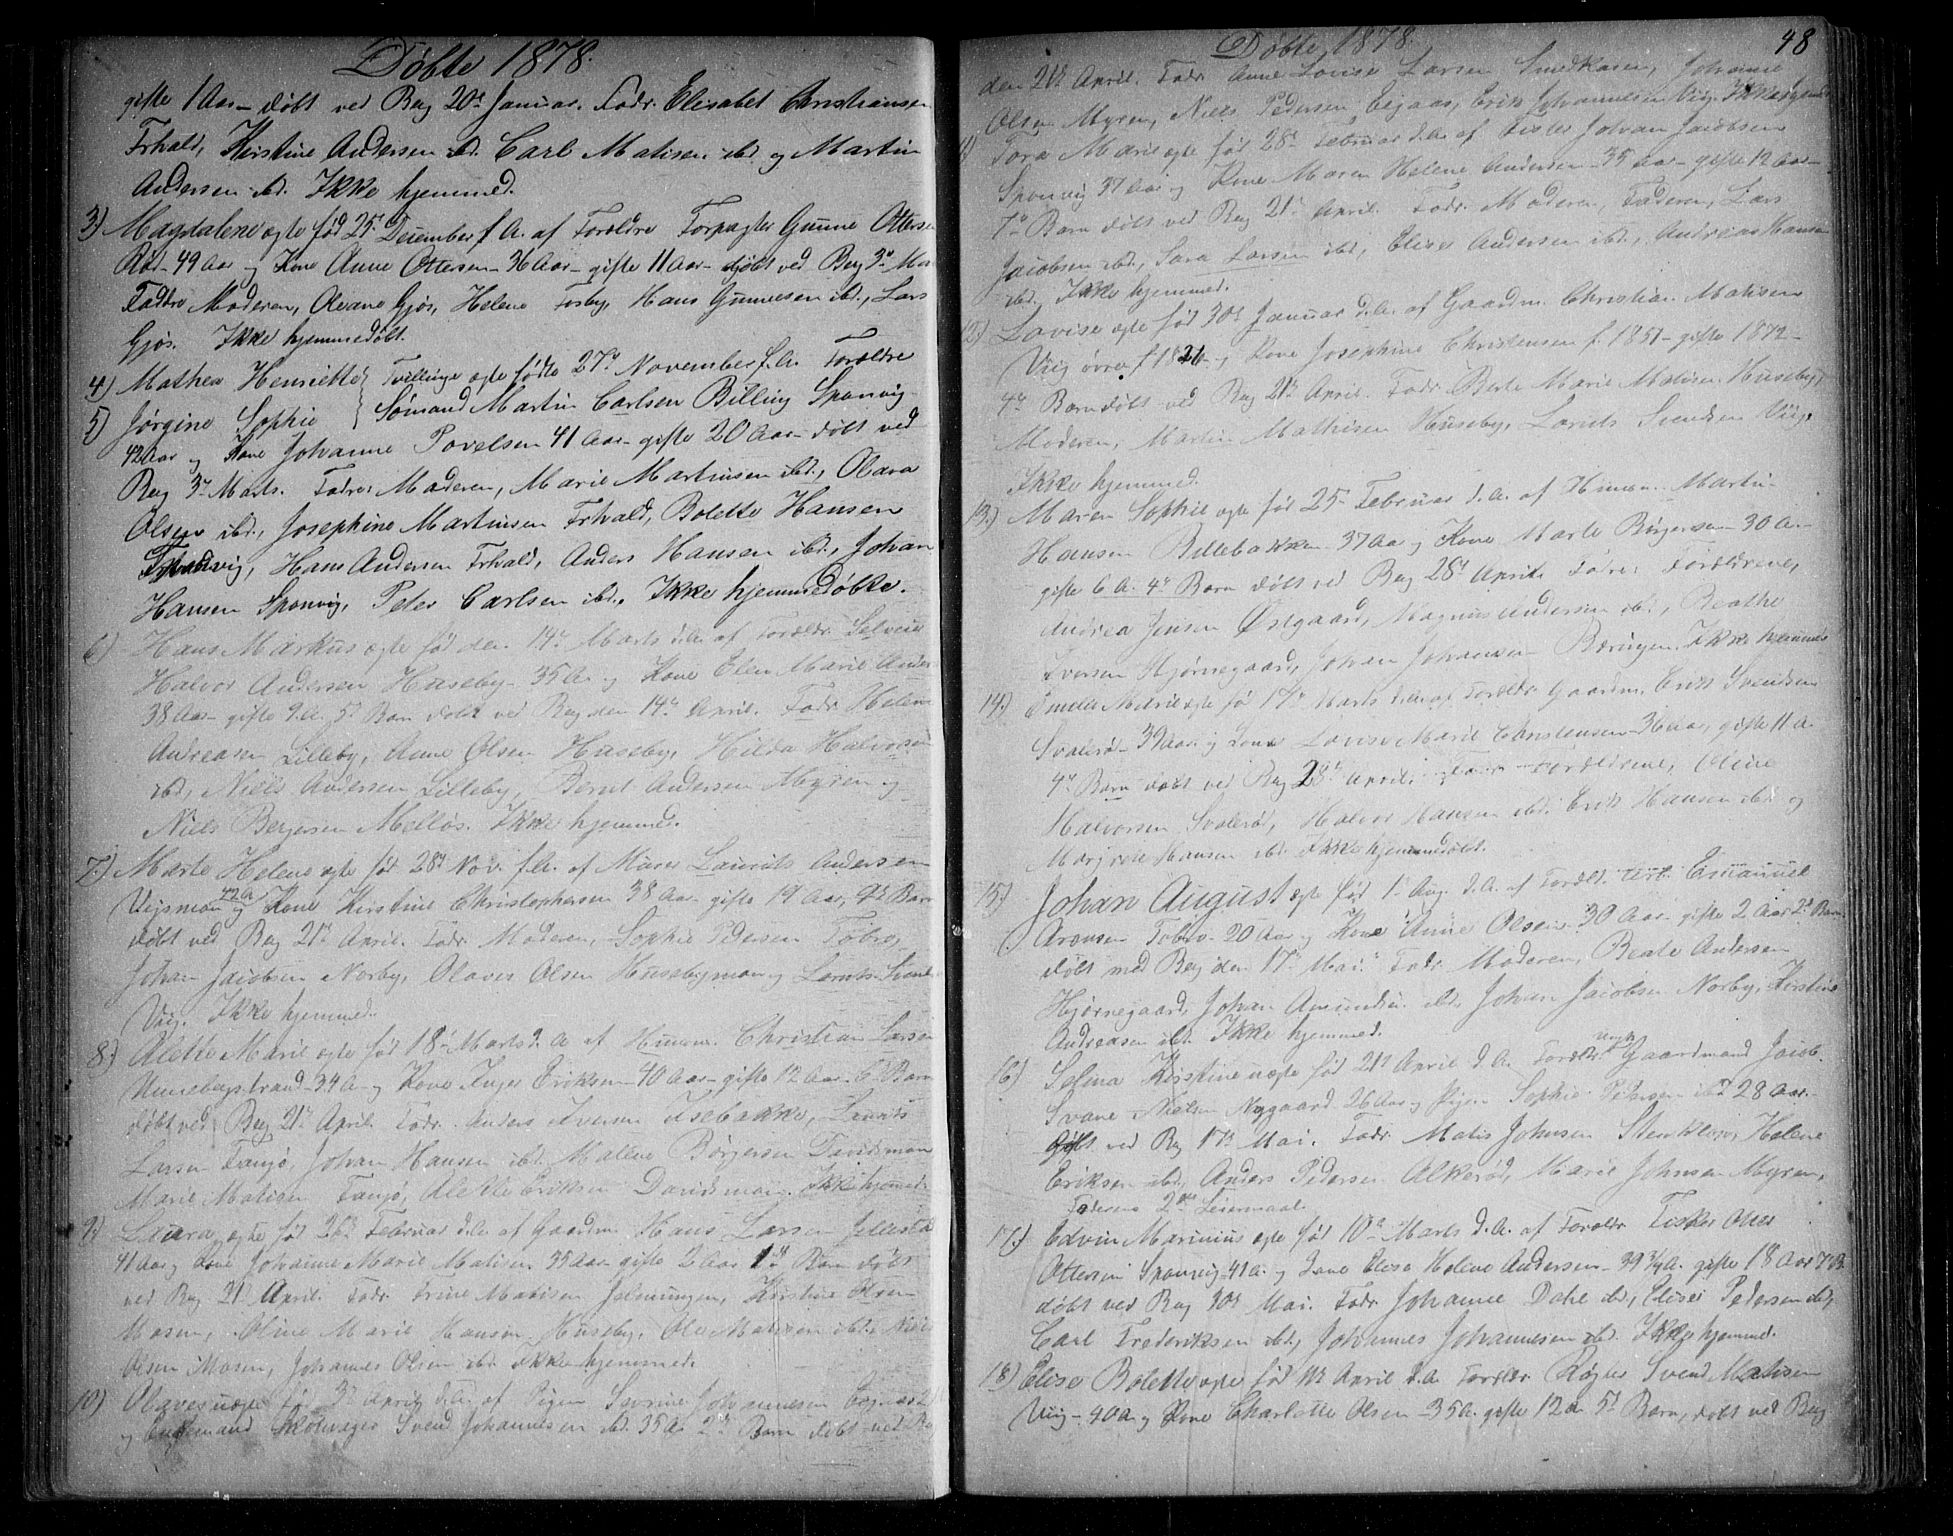 Døbte 1878.
gifte 1 Aar – døbt ved Berg 20de Januar. Fadr. Elisabet Christiansen
Frhald, Kirstine Andersen ibd. Carl Matisen ibd. og Martin
Andersen ibd. Ikke hjemmed.
3) Magdalene ægte fød 25de December f. A. af Forældre Forpagter Gunne Ottersen
Rød – 49 Aar og Kone Anne Ottersen – 36 Aar – gifte 11 Aar – døbt ved Berg 3de Ma
Faddre Moderen, Oleane Gjøs, Helene Forby, Hans Gunnesen ibd., Lars
Gjøs. Ikke hjemmedøbt.
4) Mathea Henriette } Tvillinge ægte fødte 27de November f. A. Forældre
5) Jørgine Sophie } Sømand Martin Carlsen Billing Sponvig
42 Aar og Kone Johanne Povelsen 41 Aar – gifte 20 Aar – døbt ved
Berg 3de Marts. Fadre: Moderen, Marie Martinsen ibd., Olava
Olsen ibd., Josephine Martinsen Frhald, Bolette Hansen
Hans Andersen Frhald, Anders Hansen ibd., Johan
Hansen Sponvig, Peter Carlsen ibd. Ikke hjemmedøbte.
6) Hans Markus ægte fød den 14de Marts d. A. af Forældr. Selveier
Halvor Andersen Huseby – 35 A. og Kone Elen Marie Ander
38 Aar – gifte 9 A. 5t Barn døbt ved Berg den 14de April. Fadr. Helene
Andreasen Lilleby, Anne Olsen Huseby, Hilda Halvorsen
ibd., Niels Andersen Lilleby, Bernt Andersen Myren og
Niels Bergersen Melløs. Ikke hjemmed.
7.) Marte Helene ægte fød 28de Nov. f. A. af Murer Laurits Andersen
Viijsmon 42 A. og Kone Kirstine Christophersen 38 Aar – gifte 19 Aar, 9de Barn
døbt ved Berg 21de April. Fadr. Moderen, Sophie Pedersen Tobro,
Johan Jacobsen Norby, Olaves Olsen Husebymon og Lornts Svend
Viig. Ikke hjemmed.
8.) Alette Marie ægte fød 18de Marts d. A. af Husm. Christian Larsen
Unnebergstrand – 34 A. og Kone Inger Eriksen – 40 Aar – gifte 12 Aar – 6t Barn
døbt ved Berg 21de April. Fadr. Anders Iversen Isebakke, Laurits
Larsen Tangø, Johan Hansen ibd. Mallene Børgersen Davidsmon
Marie Matisen Tangø, Alette Eriksen Davidsmon. Ikke hjemmed.
9.) Laura ægte fød 26de Februar d. A. af Gaardm. Hans Larsen
41 Aar og Kone Johanne Marie Matisen 35 Aar – gifte 2 Aar 1ste Barn døbt
ved Berg 21 April. Fadr. Trine Matisen Kirstine
Mosen, Oline Marie Hansen Huseby, Ole Matisen ibd., Niels
Olsen Mosen, Johannes Olsen ibd. Ikke hjemmed.
10) Olaves uægte fød 3de April d. A. af Pigen Severine Johannesen
og Enkemand Svend Johannesen ibd. 35 A. 2det Barn døbt ved Be

48
Døbte 1878.
den 21de April. Fadr. Anne Lovise Larsen Smedkasen, Johanne
Olsen Myren, Niels Pedersen Eigaas, Erik Johannesen Viig. Ikke hjemmd.
11) Tora Marie ægte fød 28de Februar d. A. af Fisker Johan Jacobsen
Sponvig 37 Aar og Kone Maren Helene Andersen – 35 Aar – gifte 12 Aar –
7de Barn døbt ved Berg 21de April. Fadr. Moderen, Faderen, Lars
Jacobsen ibd., Sara Larsen ibd., Elises Andersen ibd., Andreas Hansen
ibd. Ikke hjemmed.
12.) Lovise ægte fød 30te Januar d. A. af Gaardm. Christian Matisen
Viig øvre f. og Kone Josephine Christensen f. 1851 – gifte 1872 –
4de Barn døbt ved Berg 21de April. Fadr. Berte Marie Matisen Huseby,
Moderen, Martin Mathisen Huseby, Lornts Svendsen Viig.
Ikke hjemmed.
13.) Maren Sophie ægte fød 25de Februar d. A. af Husm. Martin
Hansen Billebakken – 37 Aar og Kone Marte Børgersen 30 A. –
gifte 6 A. 4de Barn døbt ved Berg 28de April. Fadre: Forældrene,
Andrea Jensen Østgaard, Magnus Andersen ibd., Beathe
Iversen Hjørnegaard, Johan Johansen Bæringen. Ikke hjemmed.
14.) Marie ægte fød 14de Marts d. A. af Forældr. Gaardm. Erik Svendsen
Svalerød – 39 Aar og Kone Lovise Marie Christensen – 36 Aar, gifte 11 A.
4de Barn døbt ved Berg 28de April. Fadr. Forældrene, Oline
Halvorsen Svalerød, Halvor Hansen ibd. Erik Hansen ibd. og
Margrete Hansen ibd. Ikke hjemmedøbt.
15.) Johan August ægte fød 1. Aug. d. A. af Foræld. Emanuel
Arensen Tobro – 20 Aar og Kone Anne Olsen 30 Aar – gifte 2 Aar 2det Barn
døbt med Berg den 17de Mai. Fadr. Moderen, Beate Andersen
Hjørnegaard, Johan Amundsen ibd., Johan Jacobsen Norby, Kirstine
Andreasen ibd. Ikke hjemmed.
16.) Selma Kirstine uægte fød 21de April d. A. Forældr. ungk. Gaardmand Jacob
Svane Nielsen Nygaard 26 Aar og Pigen Sophie Pedersen ibd 28 Aar –
døbt ved Berg 17de Mai. Fadr. Matis Johnsen Stenkløv, Helene
Eriksen ibd., Anders Pedersen Alkerød, Marie Johnsen Myren.
Faderens 2det Leiermaal.
17.) Edvin Marinius ægte fød 10de Marts d. A. af Forældr. Fisker Oles
Ottersen Sponvig – 41 A. og Kone Elese Helene Andersen – 39 3/4 A. gifte 18 Aar 7de B.
døbt ved Berg 30te Mai. Fadr. Johanne Dahl ibd., Elises Pedersen ibd.,
Carl Frederiksen ibd., Johannes Johannesen ibd. Ikke hjemmed.
18) Elise Bolette ægte fød 11te April d. A. Forældr. Røgter Svend Matisen
Viig – 40 A. og Kone Charlotte Olsen – 35 A. gifte 12 A. 5t Barn, døbt ved Berg